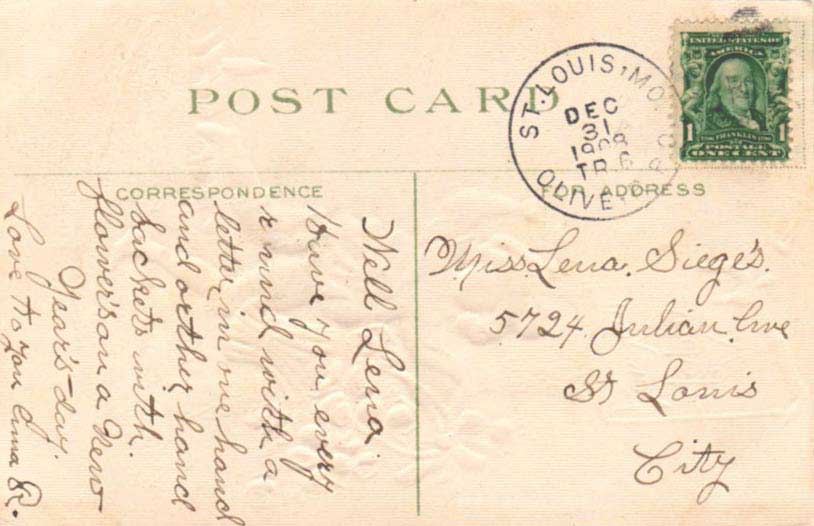 POST CARD
ST. LOUIS, MO.
DEC
31
1908
TR. 6
OLIVE
UNITED STATES OF
AMERICA
1 FRANKLIN 1
POSTAGE
ONE CENT
CORRESPONDENCE
FOR ADDRESS
Well Lena
Have you every
round with a
letter in one hand
and orther hand
backets with
flowers on a New
Year's day.
Love to you Anna R.
Miss. Lena. Siege's.
5724 Julian Ave
St Louis
City